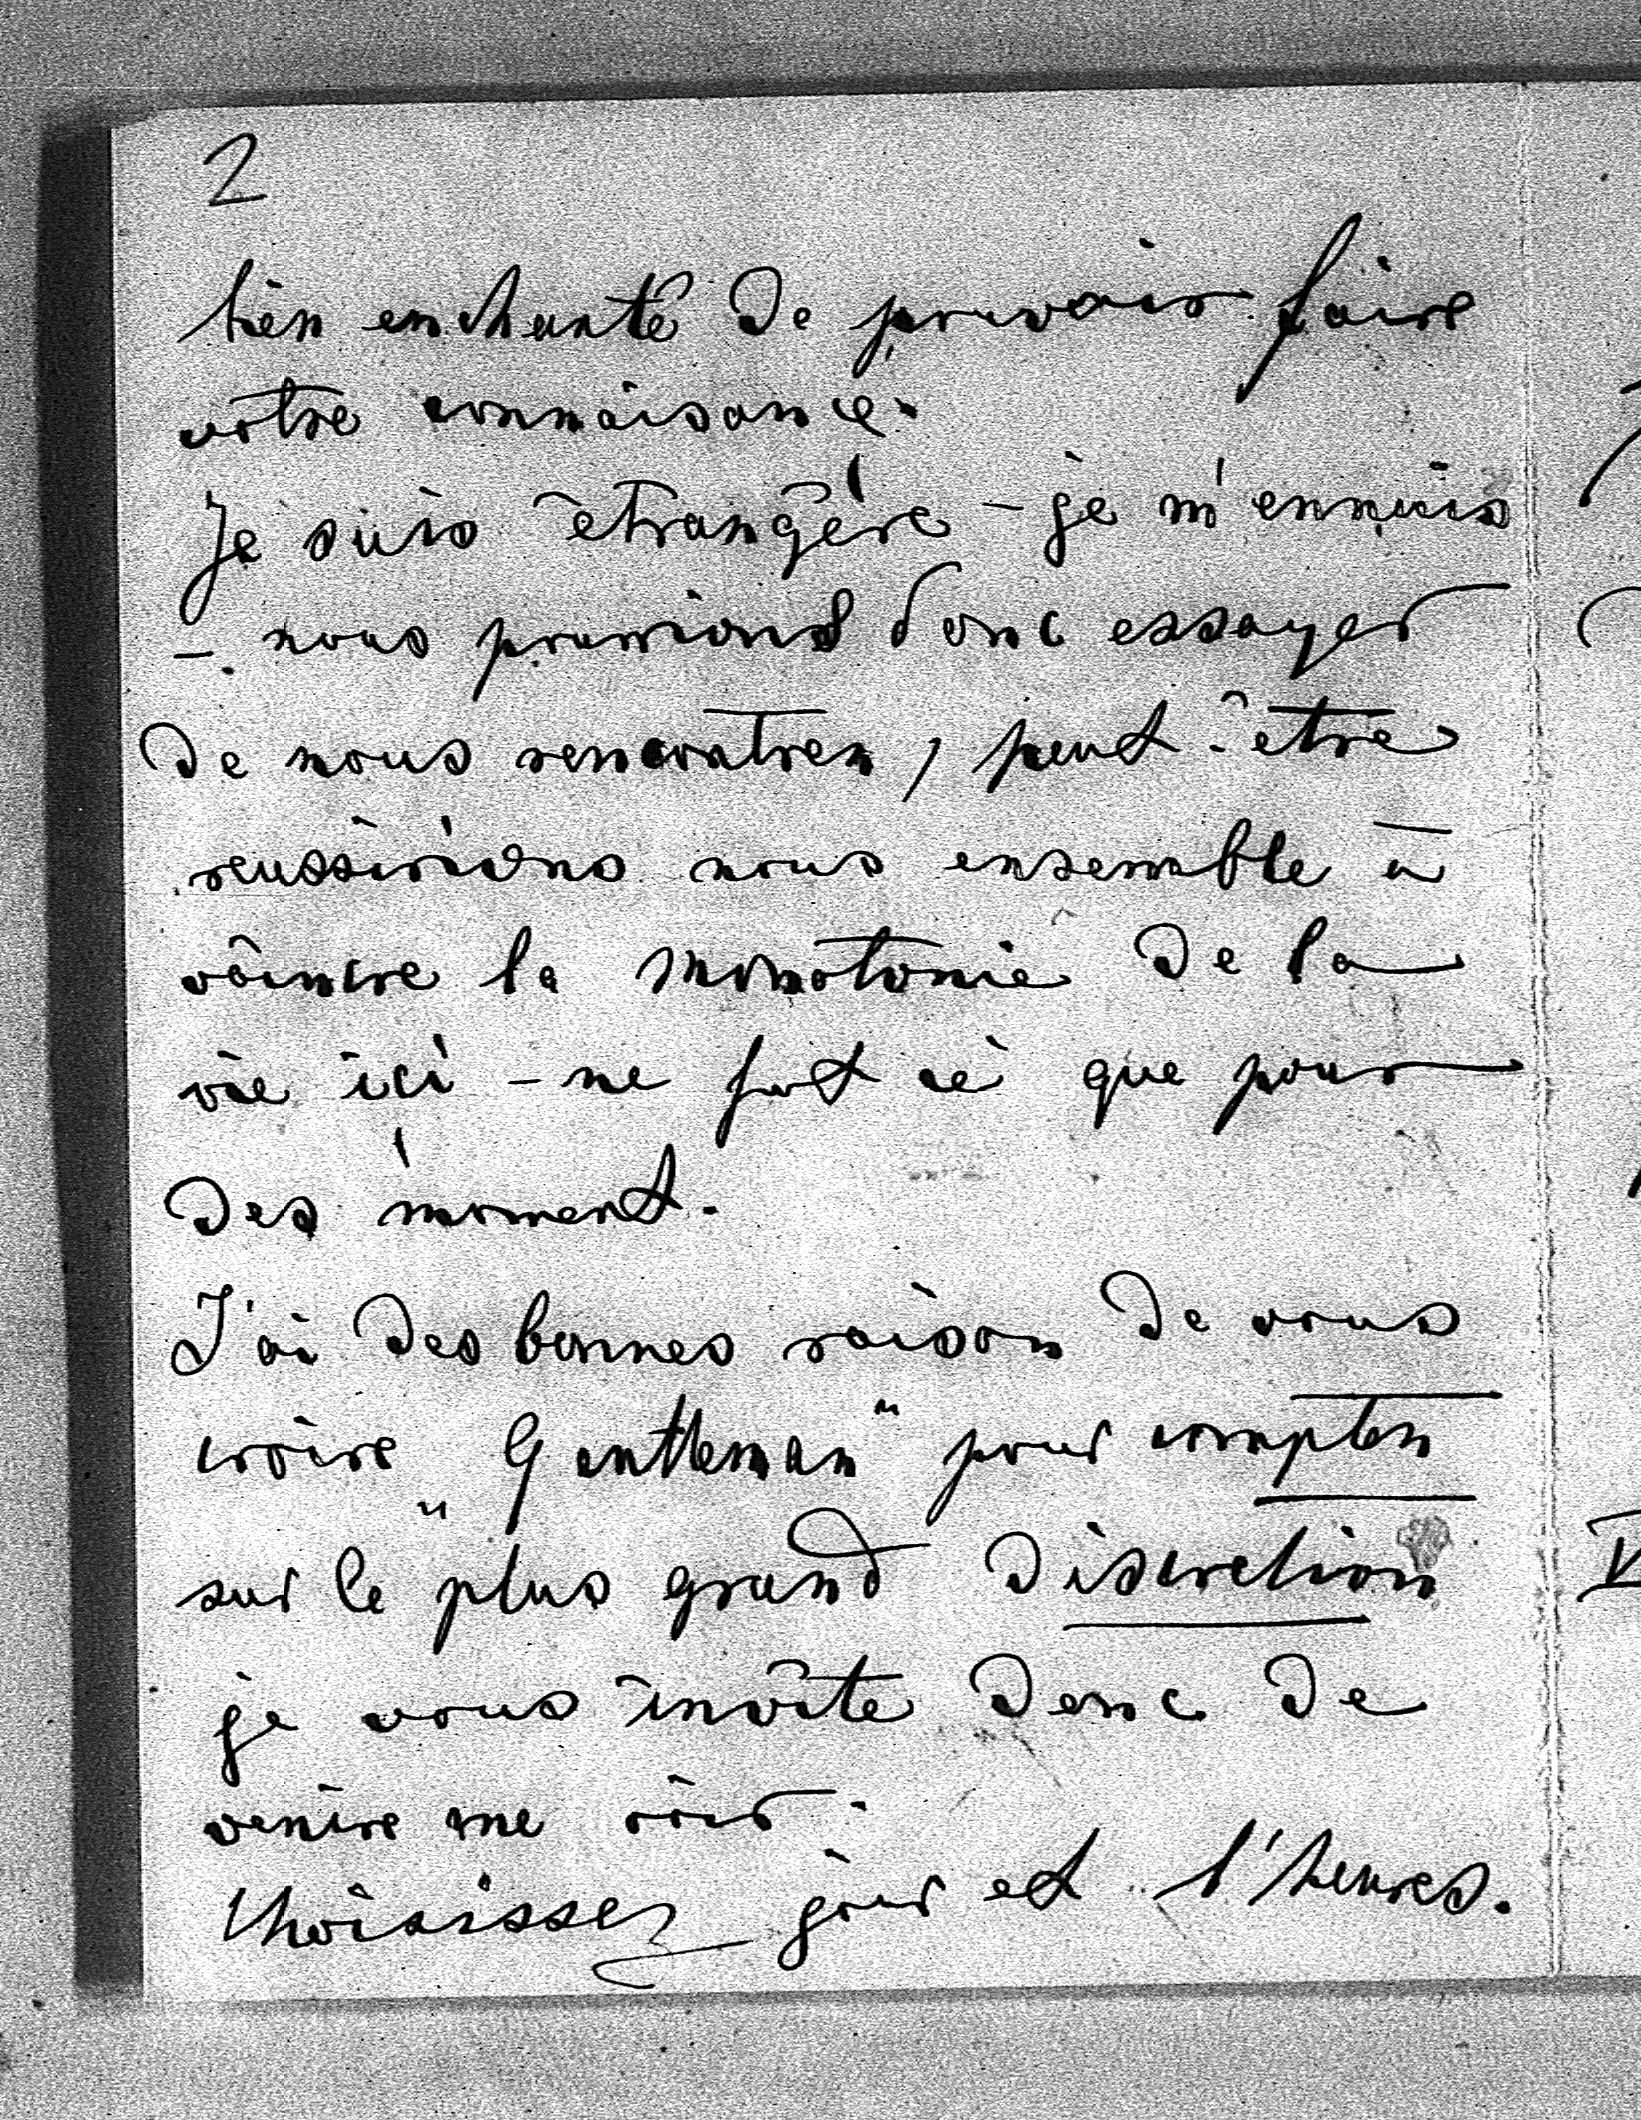 2
bien enchanté de pouvoir faire
votre connaisance.
Je suis étrangère - je m'ennuis
- nous pourrions donc essayer
de nous rencontrer, peut-être
reussirions nous ensemble à
vaincre la monotonie de la
vie ici - ne fut cè que pour
des moment.
J'ai des bonnes raison de vous
croire "Gentleman" pour compter
sur le plus grand discretion
je vous invite donc de
venire me voir.
Choisissez jour et l'heures.